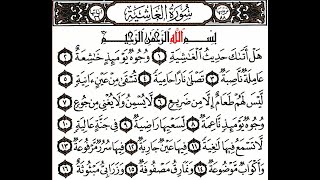 سُورَةُ الْغَاشِيَةِ
بِسْمِ اللَّهِ الرَّحْمَٰنِ الرَّحِيمِ
هَلْ أَتَىٰكَ حَدِيثُ الْغَٰشِيَةِ ١ وُجُوهٌ يَوْمَئِذٍ خَٰشِعَةٌ ٢
عَامِلَةٌ نَّاصِبَةٌ ٣ تَصْلَىٰ نَارًا حَامِيَةً ٤ تُسْقَىٰ مِنْ عَيْنٍ ءَانِيَةٍ ٥
لَّيْسَ لَهُمْ طَعَامٌ إِلَّا مِن ضَرِيعٍ ٦ لَّا يُسْمِنُ وَلَا يُغْنِي مِن جُوعٍ ٧
وُجُوهٌ يَوْمَئِذٍ نَّاعِمَةٌ ٨ لِّسَعْيِهَا رَاضِيَةٌ ٩ فِي جَنَّةٍ عَالِيَةٍ ١٠
لَّا تَسْمَعُ فِيهَا لَٰغِيَةً ١١ فِيهَا عَيْنٌ جَارِيَةٌ ١٢ فِيهَا سُرُرٌ مَّرْفُوعَةٌ ١٣
وَأَكْوَابٌ مَّوْضُوعَةٌ ١٤ وَنَمَارِقُ مَصْفُوفَةٌ ١٥ وَزَرَابِيُّ مَبْثُوثَةٌ ١٦